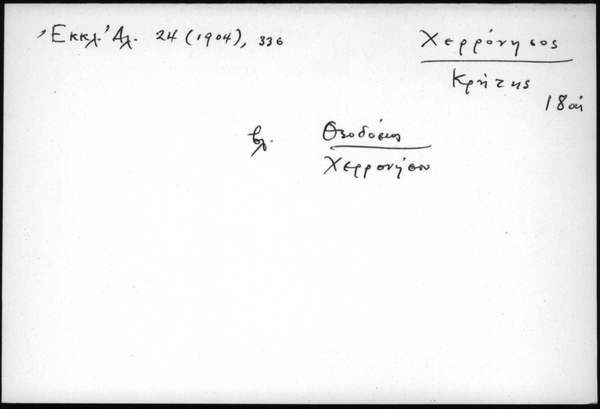 Ἐκκλ. Ἀλ. 24 (1904), 336
Χερρόνησος
Κρήτης
18 αἰ
βλ. Θεοδόσιος
Χερρονήσου